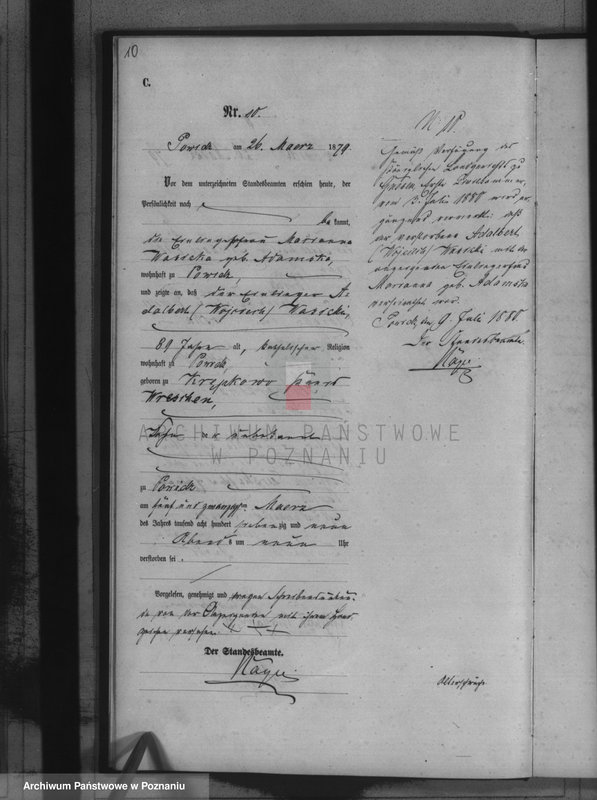 10
C.
Nr. 10.
Powidz am 26. Maerz 1879
Vor dem unterzeichneten Standesbeamten erschien heute, der
Persönlichkeit nach
bekannt,
die Einliegerfrau Marianna
Wasicka geb. Adamska,
wohnhaft zu Powidz,
und zeigte an, daß der Einlieger A-
dalbert (Wojciech) Wasicki,
89 Jahre alt, katholischer Religion
wohnhaft zu Powidz,
geboren zu
Wreschen,
Sohn der unbekannt
zu Powidz
am fünf und zwanzigsten Maerz
des Jahres tausend acht hundert siebenzig und neun
Abends um neun Uhr
verstorben sei.
Vorgelesen, genehmigt und wegen Schreibensunkun-
de von der Anzeigenden mit ihrem Hand-
zeichen versehen. +++
Der Standesbeamte.
N. 10.
Gemäß Verfügung des
Königlichen Landgerichts zu
Gnesen, Erste Civilkammer,
vom 3. Juli 1880 wird er-
gänzend vermerkt: daß
der verstorbene Adalbert
(Wojciech) Wasicki mit der
angezeigten Einliegerfrau
Marianna geb. Adamska
verheirathet war.
Powidz, den 9. Juli 1880.
Der Standesbeamte.
Altersschwäche
ARCHIWUM PAŃSTWOWE
W POZNANIU
Archiwum Państwowe w Poznaniu